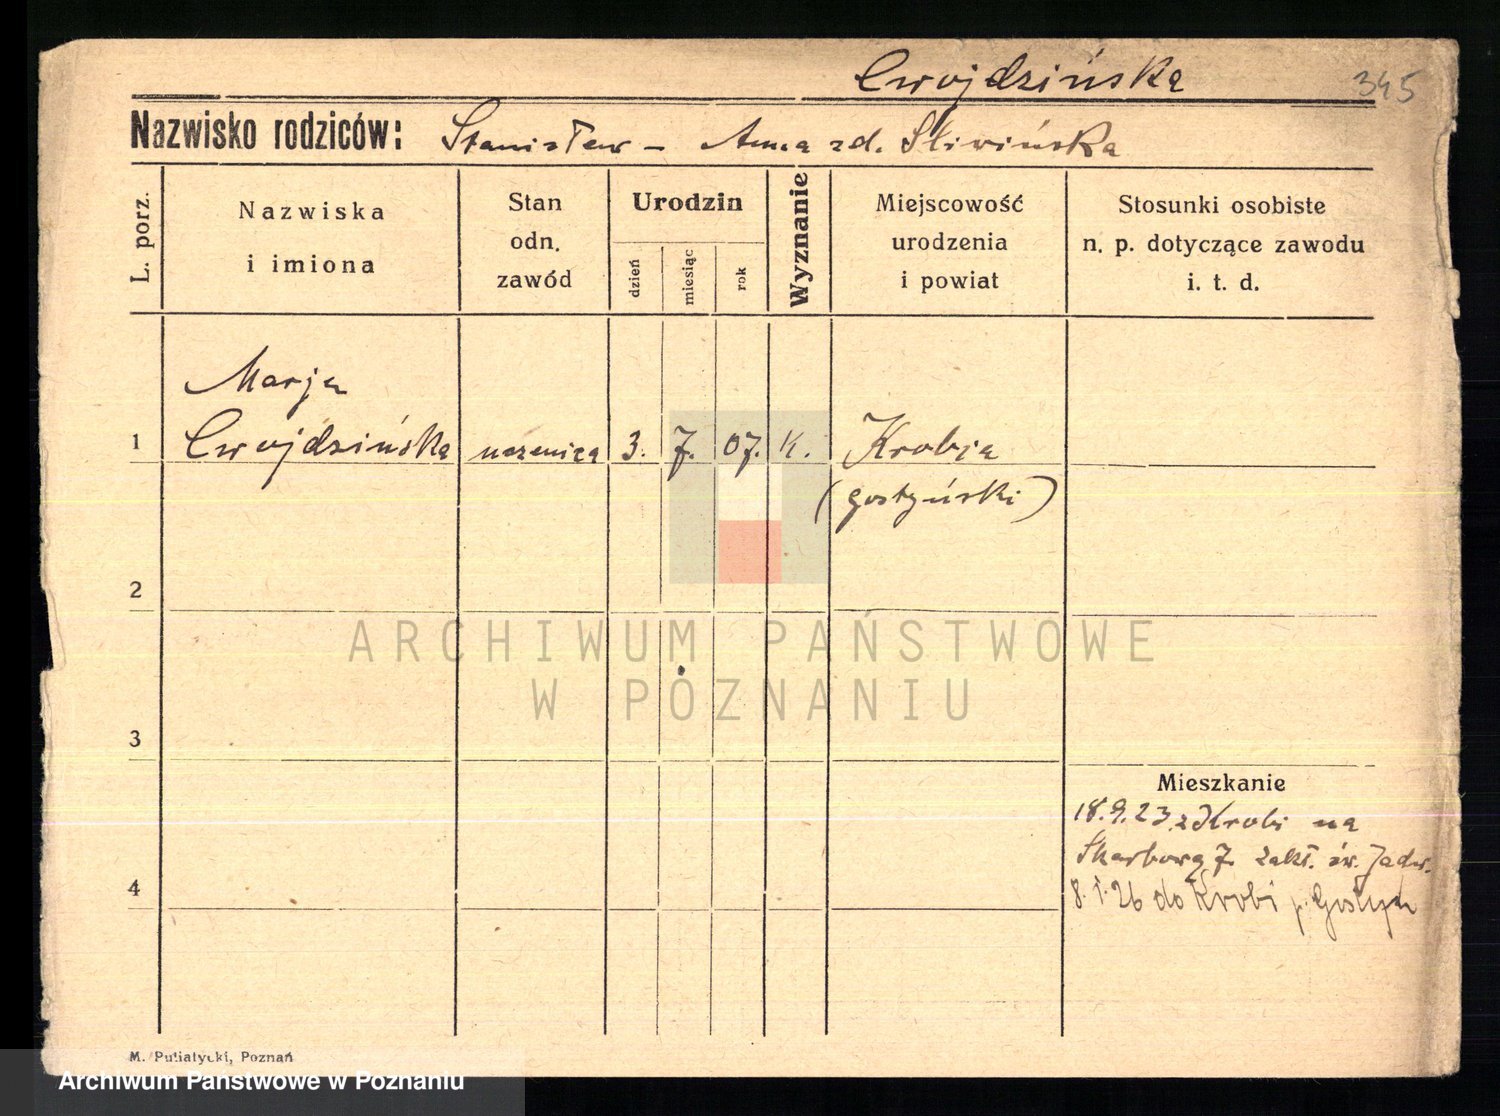 Cwojdzińska
345
Nazwisko rodziców: Stanisław – Anna zd. Śliwińska
L. porz.
Nazwiska
i imiona
Stan
odn.
zawód
Urodzin
dzień
miesiąc
rok
Wyznanie
Miejscowość
urodzenia
i powiat
Stosunki osobiste
n. p. dotyczące zawodu
i. t. d.
Marja
1 Cwojdzińska uczenica 3. 7. 07. K. Krobia
(gostyński)
2
ARCHIWUM PAŃSTWOWE
W POZNANIU
3
Mieszkanie
18.9.23. z Krobi na
Skarbowa 7. zakł. św. Jadw.
4
8. I. 26 do Krobi p. Gostyń
M. Putiatycki, Poznań
Archiwum Państwowe w Poznaniu